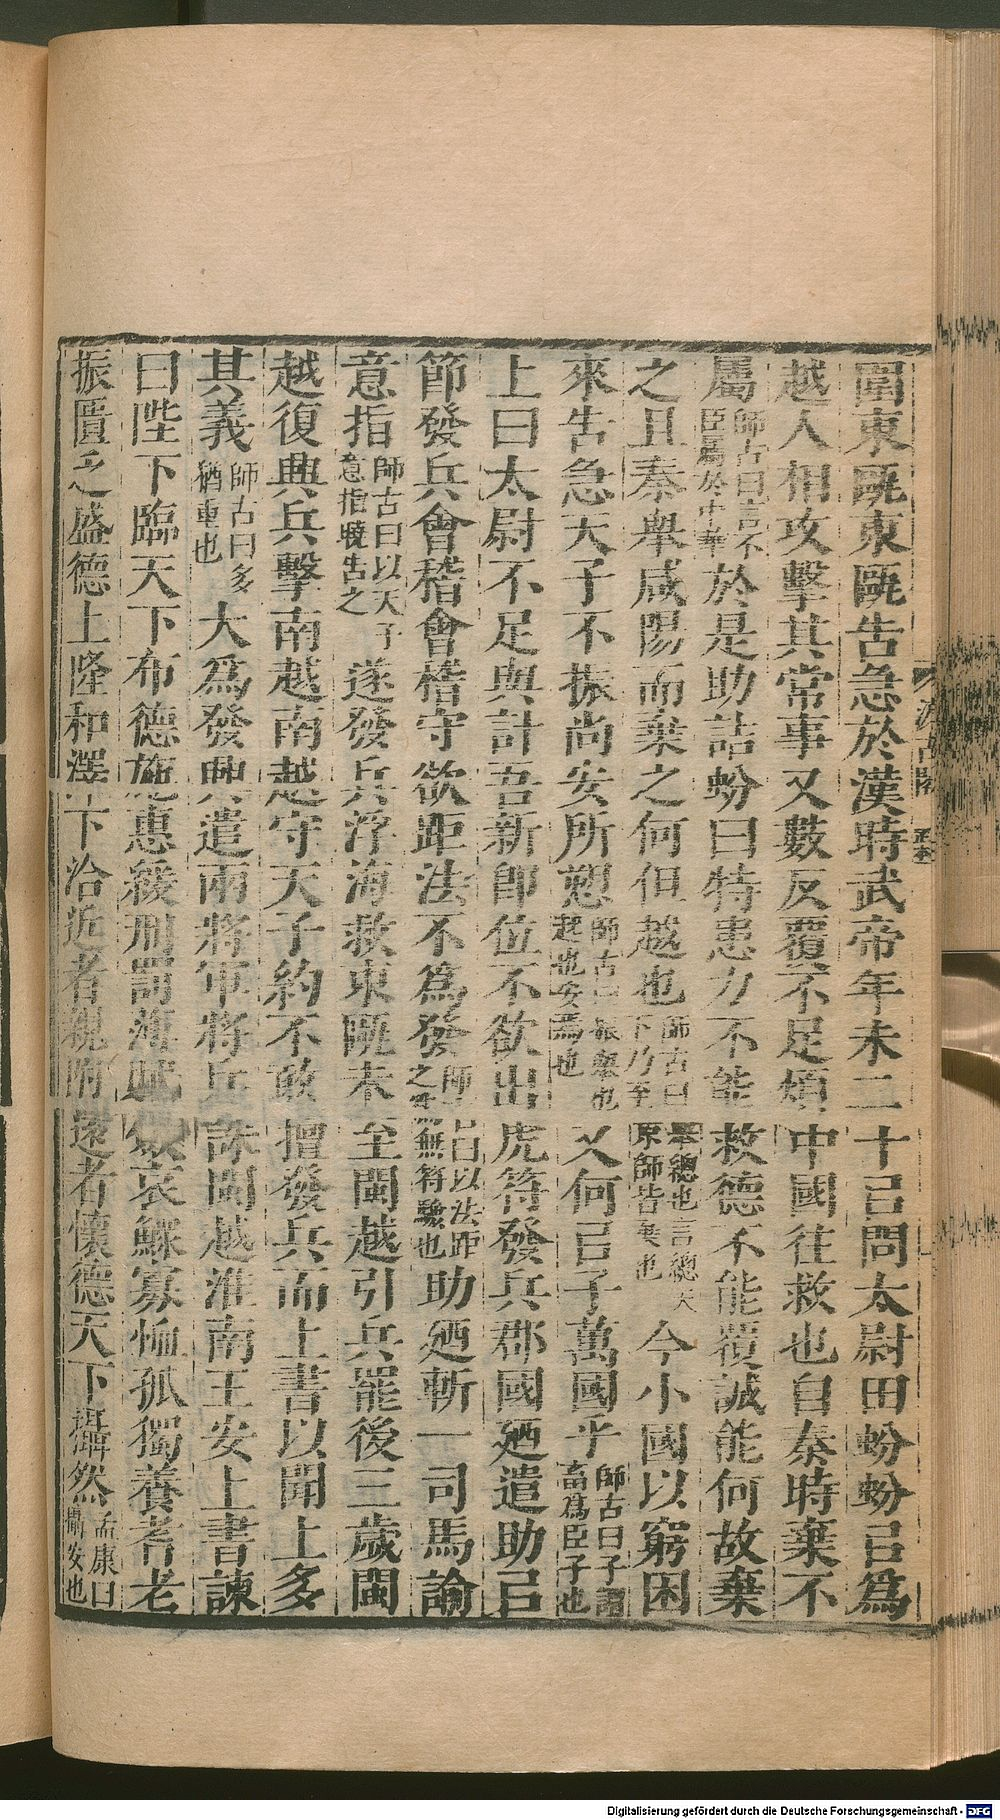 圍東甌東甌告急於漢時武帝年未二十㠯問太尉田蚡蚡㠯爲
越人相攻擊其常事又數反覆不足煩中國往救也自秦時棄不
屬師古曰言不臣屬於中華於是助詰蚡曰特患力不能救德不能覆誠能何故棄
之且秦舉咸陽而棄之何但越也師古曰舉總也言總天下乃至京師皆棄也今小國以窮困
來告急天子不振尚安所愬師古曰振舉也起也安焉也又何㠯子萬國乎師古曰子謂畜爲臣子也
上曰太尉不足與計吾新卽位不欲出虎符發兵郡國廼遣助㠯
節發兵會稽會稽守欲距法不爲發師古曰以法距之爲無符驗也助廼斬一司馬諭
意指師古曰以天子意指曉告之遂發兵浮海救東甌未至閩越引兵罷後三歲閩
越復興兵擊南越南越守天子約不敢擅發兵而上書以聞上多
其義師古曰多猶重也大爲發興遣兩將軍將兵誅閩越淮南王安上書諫
曰陛下臨天下布德施惠緩刑罰薄賦歛哀鰥寡恤孤獨養耆老
振匱乏盛德上隆和澤下洽近者親附遠者懷德天下攝然孟康曰攝安也
汲古閣
毛氏
Digitalisierung gefördert durch die Deutsche Forschungsgemeinschaft - DFG